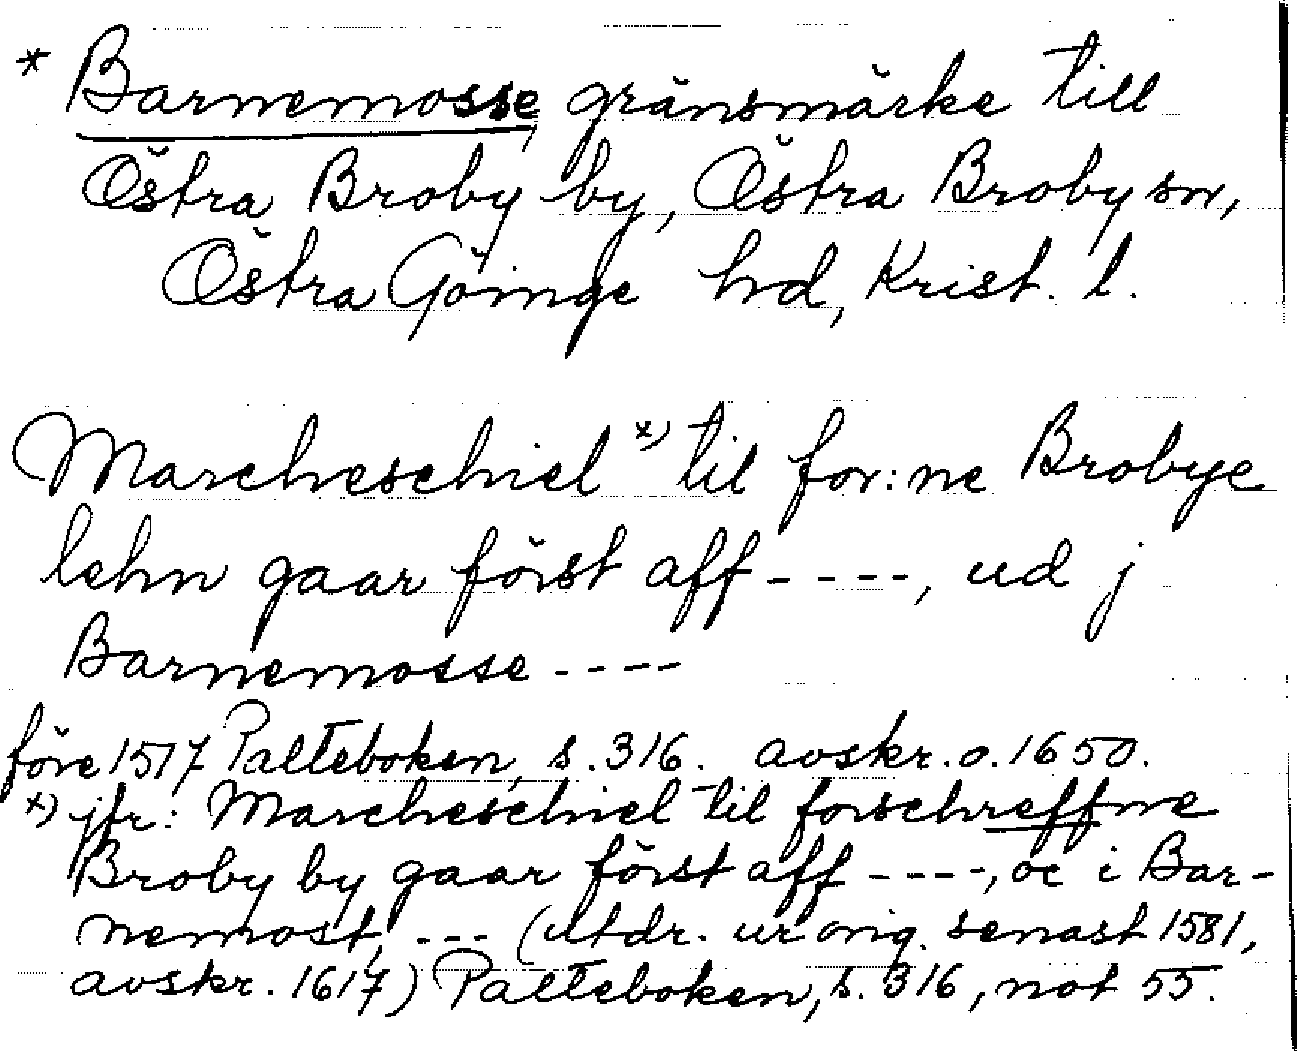 * Barnemosse, gränsmärke till
Östra Broby by, Östra Broby sn,
Östra Göinge hd, Krist. l.
Marcheschiel *) til for:ne Brobye
lehn gaar först aff ----, ud j
Barnemosse ----
före 1517 Palteboken, s. 316. avskr. o. 1650.
*) jfr: Marcheschiel til forschreffne
Broby by gaar först aff ----, oc i Bar-
nemost, --- (utdr. ur orig. senast 1581,
avskr. 1617) Palteboken, s. 316, not 55.